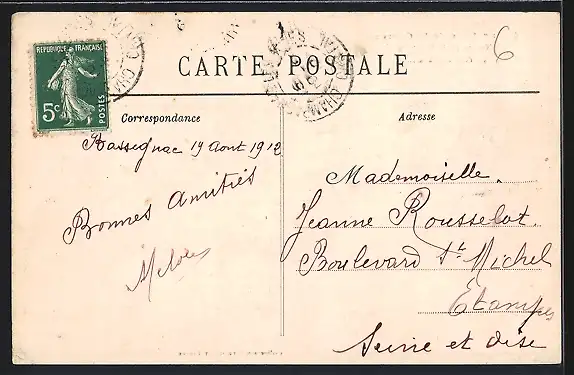 RÉPUBLIQUE FRANÇAISE
5c
POSTES
6
CARTE POSTALE
Correspondance
Adresse
Bassignac 19 Aout 1912
Bonnes Amitiés
Mademoiselle
Jeanne Rousselot
Boulevard St Michel
Étampes
Seine et Oise